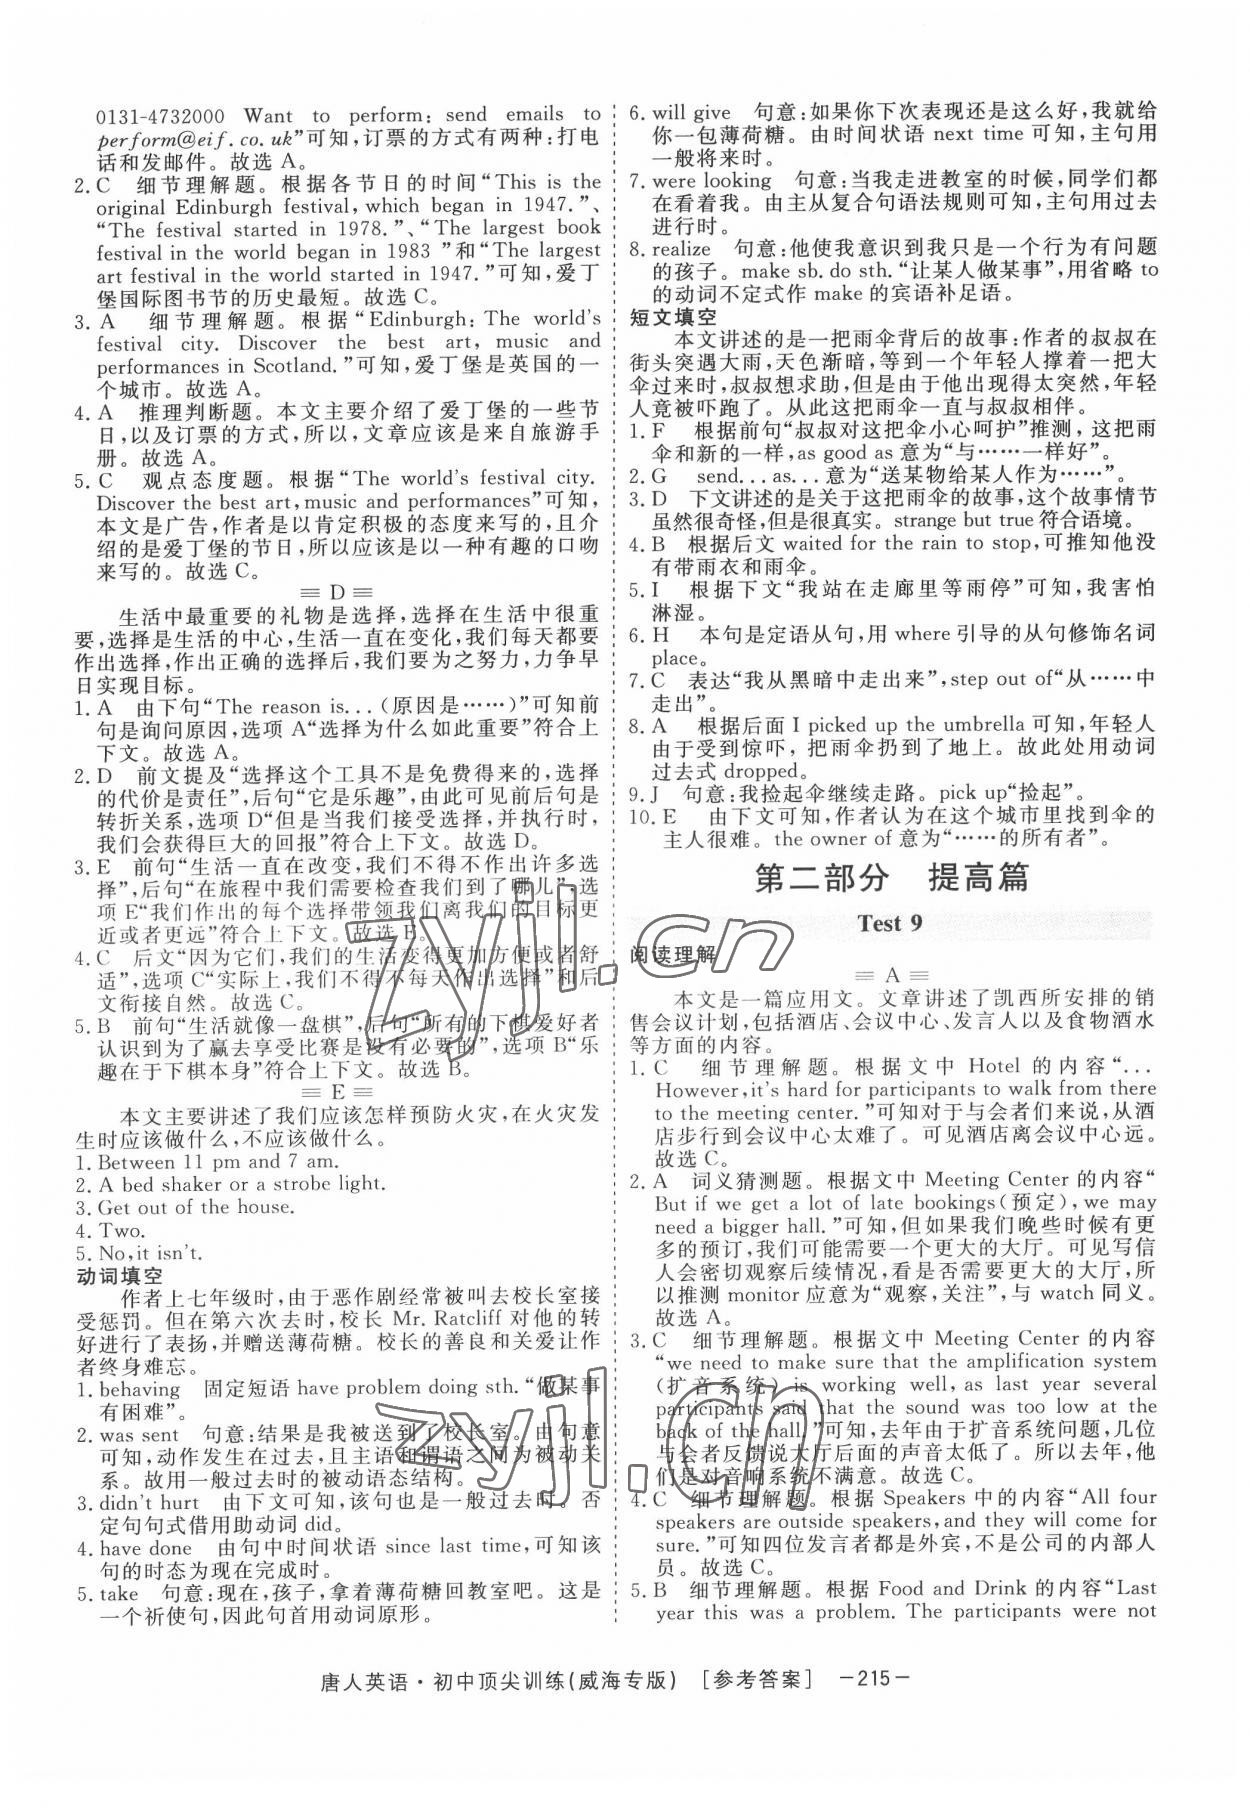 0131-4732000 Want to perform: send emails to
perform@eif.co.uk”可知,订票的方式有两种:打电
话和发邮件。故选 A。
2. C 细节理解题。根据各节日的时间“This is the
original Edinburgh festival, which began in 1947.”、
“The festival started in 1978.”、“The largest book
festival in the world began in 1983 ”和“The largest
art festival in the world started in 1947.”可知,爱丁
堡国际图书节的历史最短。故选 C。
3. A 细节理解题。根据“Edinburgh: The world's
festival city. Discover the best art, music and
performances in Scotland.”可知,爱丁堡是英国的一
个城市。故选 A。
4. A 推理判断题。本文主要介绍了爱丁堡的一些节
日,以及订票的方式,所以,文章应该是来自旅游手
册。故选 A。
5. C 观点态度题。根据“The world's festival city.
Discover the best art, music and performances”可知,
本文是广告,作者是以肯定积极的态度来写的,且介
绍的是爱丁堡的节日,所以应该是以一种有趣的口吻
来写的。故选 C。
= D =
生活中最重要的礼物是选择,选择在生活中很重
要,选择是生活的中心,生活一直在变化,我们每天都要
作出选择,作出正确的选择后,我们要为之努力,力争早
日实现目标。
1. A 由下句“The reason is...(原因是……)”可知前
句是询问原因,选项 A“选择为什么如此重要”符合上
下文。故选 A。
2. D 前文提及“选择这个工具不是免费得来的,选择
的代价是责任”,后句“它是乐趣”,由此可见前后句是
转折关系,选项 D“但是当我们接受选择,并执行时,
我们会获得巨大的回报”符合上下文。故选 D。
3. E 前句“生活一直在改变,我们不得不作出许多选
择”,后句“在旅程中我们需要检查我们到了哪儿”,选
项 E“我们作出的每个选择带领我们离我们的目标更
近或者更远”符合上下文。故选 E。
4. C 后文“因为它们,我们的生活变得更加方便或者舒
适”,选项 C“实际上,我们不得不每天作出选择”和后
文衔接自然。故选 C。
5. B 前句“生活就像一盘棋”,后句“所有的下棋爱好者
认识到为了赢去享受比赛是没有必要的”,选项 B“乐
趣在于下棋本身”符合上下文。故选 B。
= E =
本文主要讲述了我们应该怎样预防火灾,在火灾发
生时应该做什么,不应该做什么。
1. Between 11 pm and 7 am.
2. A bed shaker or a strobe light.
3. Get out of the house.
4. Two.
5. No, it isn't.
动词填空
作者上七年级时,由于恶作剧经常被叫去校长室接
受惩罚。但在第六次去时,校长 Mr. Ratcliff 对他的转
好进行了表扬,并赠送薄荷糖。校长的善良和关爱让作
者终身难忘。
1. behaving 固定短语 have problem doing sth.“做某事
有困难”。
2. was sent 句意:结果是我被送到了校长室。由句意
可知,动作发生在过去,且主语和谓语之间为被动关
系。故用一般过去时的被动语态结构。
3. didn't hurt 由下文可知,该句也是一般过去时。否
定句句式借用助动词 did。
4. have done 由句中时间状语 since last time,可知该
句的时态为现在完成时。
5. take 句意:现在,孩子,拿着薄荷糖回教室吧。这是
一个祈使句,因此句首用动词原形。
6. will give 句意:如果你下次表现还是这么好,我就给
你一包薄荷糖。由时间状语 next time 可知,主句用
一般将来时。
7. were looking 句意:当我走进教室的时候,同学们都
在看着我。由主从复合句语法规则可知,主句用过去
进行时。
8. realize 句意:他使我意识到我只是一个行为有问题
的孩子。make sb. do sth.“让某人做某事”,用省略 to
的动词不定式作 make 的宾语补足语。
短文填空
本文讲述的是一把雨伞背后的故事:作者的叔叔在
街头突遇大雨,天色渐暗,等到一个年轻人撑着一把大
伞过来时,叔叔想求助,但是由于他出现得太突然,年轻
人竟被吓跑了。从此这把雨伞一直与叔叔相伴。
1. F 根据前句“叔叔对这把伞小心呵护”推测,这把雨
伞和新的一样,as good as 意为“与……一样好”。
2. G send... as... 意为“送某物给某人作为……”。
3. D 下文讲述的是关于这把雨伞的故事,这个故事情节
虽然很奇怪,但是很真实。strange but true 符合语境。
4. B 根据后文 waited for the rain to stop,可推知他没
有带雨衣和雨伞。
5. I 根据下文“我站在走廊里等雨停”可知,我害怕
淋湿。
6. H 本句是定语从句,用 where 引导的从句修饰名词
place。
7. C 表达“我从黑暗中走出来”,step out of“从……中
走出”。
8. A 根据后面 I picked up the umbrella 可知,年轻人
由于受到惊吓,把雨伞扔到了地上。故此处用动词
过去式 dropped。
9. J 句意:我捡起伞继续走路。pick up“捡起”。
10. E 由下文可知,作者认为在这个城市里找到伞的
主人很难。the owner of 意为“……的所有者”。
第二部分 提高篇
Test 9
阅读理解
= A =
本文是一篇应用文。文章讲述了凯西所安排的销
售会议计划,包括酒店、会议中心、发言人以及食物酒水
等方面的内容。
1. C 细节理解题。根据文中 Hotel 的内容“...
However, it's hard for participants to walk from there
to the meeting center.”可知对于与会者们来说,从酒
店步行到会议中心太难了。可见酒店离会议中心远。
故选 C。
2. A 词义猜测题。根据文中 Meeting Center 的内容“
But if we get a lot of late bookings(预定), we may
need a bigger hall.”可知,但如果我们晚些时候有更
多的预订,我们可能需要一个更大的大厅。可见写信
人会密切观察后续情况,看是否需要更大的大厅,所
以推测 monitor 应意为“观察,关注”,与 watch 同义。
故选 A。
3. C 细节理解题。根据文中 Meeting Center 的内容
“we need to make sure that the amplification system
(扩音系统) is working well, as last year several
participants said that the sound was too low at the
back of the hall.”可知,去年由于扩音系统问题,几位
与会者反馈说大厅后面的声音太低了。所以去年,他
们是对音响系统不满意。故选 C。
4. C 细节理解题。根据 Speakers 中的内容“All four
speakers are outside speakers, and they will come for
sure.”可知四位发言者都是外宾,不是公司的内部人
员。故选 C。
5. B 细节理解题。根据 Food and Drink 的内容“Last
year this was a problem. The participants were not
唐人英语·初中顶尖训练(威海专版) [参考答案] —215—
zyjl.cn
zyjl.cn